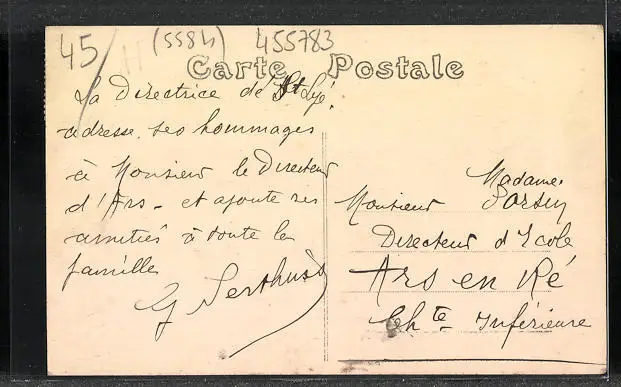 45/
(5584)
455783
Carte Postale
La Directrice de St Lyé
adresse ses hommages
à Monsieur le Directeur
d'Ars - et ajoute ses
amitiés à toute la
famille
G
Madame
Monsieur
Directeur d'Ecole
Ars en Ré
Chte Inférieure